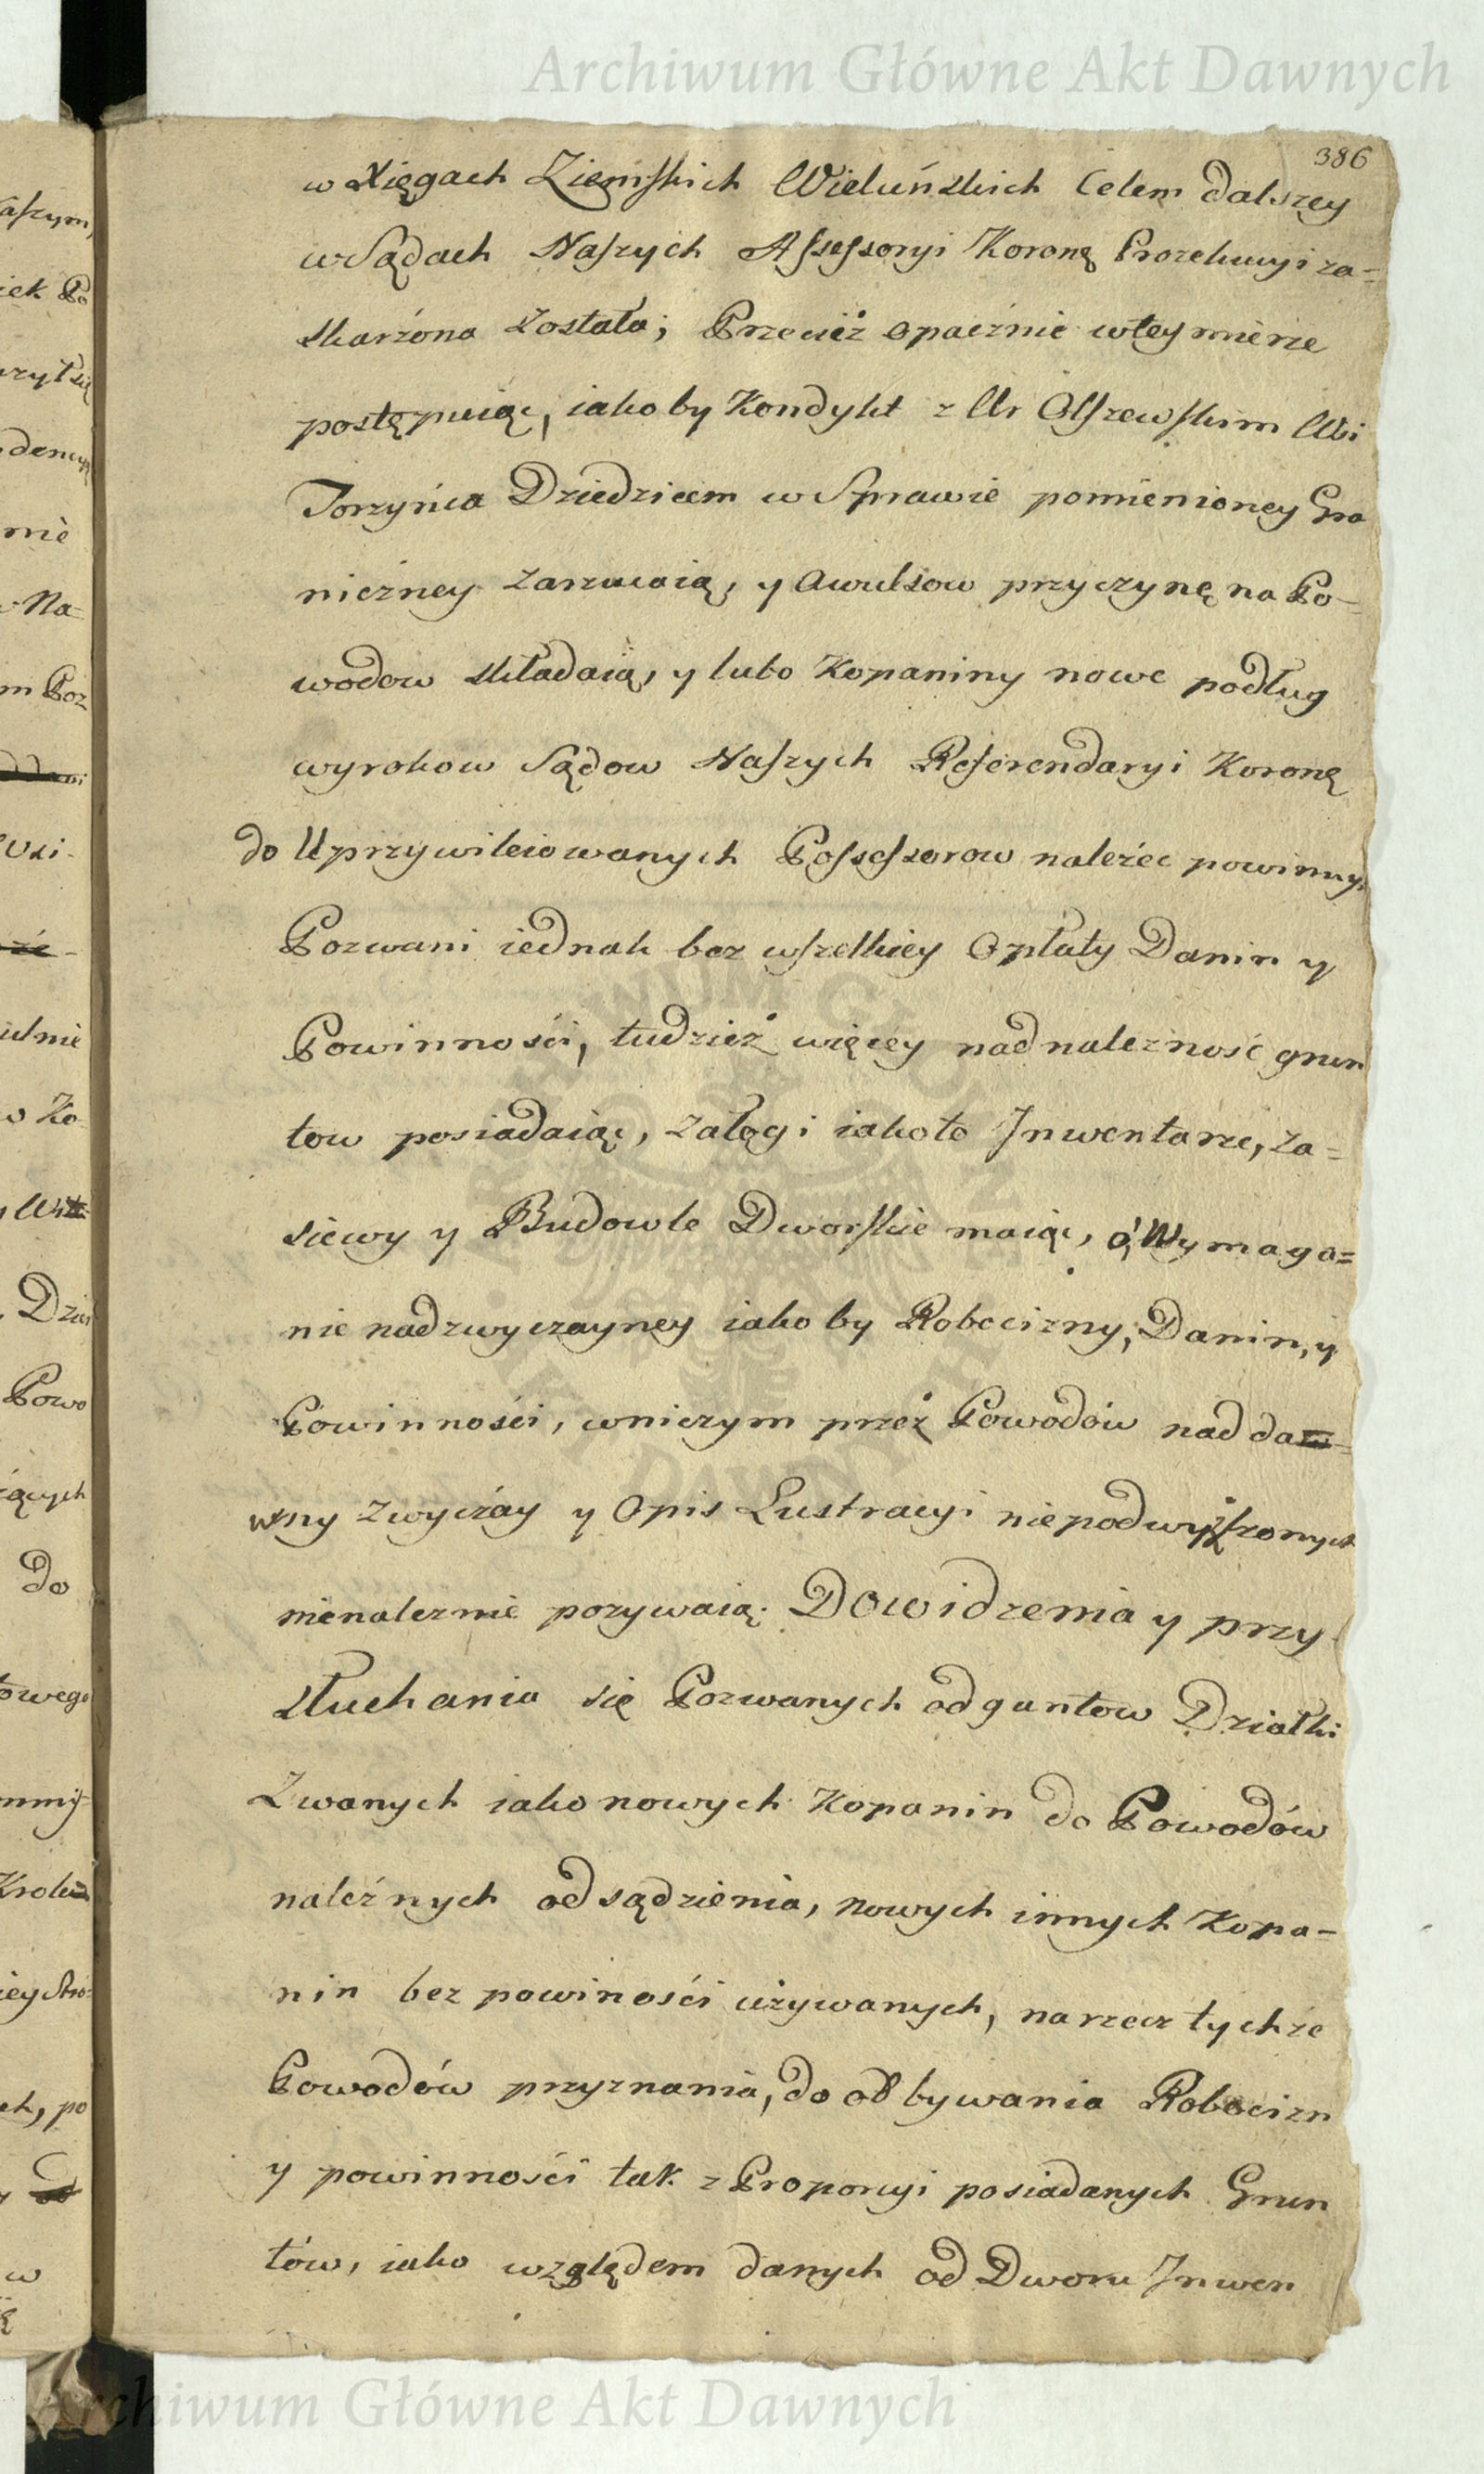 Archiwum Główne Akt Dawnych
386
w Xięgach Ziemskich Wieluńskich Celem dalszey
w Sądach Naszych Assessoryi Koronę Prozekucyi za=
skarżona została; Przecież opacznie w tey mierze
postępuiąc, iakoby Kondykt z Ur Olszewskim Wsi
Torzyńca Dziedzicem w Sprawie pomienioney Gra
niczney zarzucaią, y Awulsow przyczynę na Po=
wodow składaią, y lubo Kopaniny nowe podług
wyrokow Sądow Naszych Referendaryi Koronę
do Uprzywileiowanych Possessorow należec powinny,
Pozwani iednak bez wszelkiey Opłaty Danin y
Powinności, tudzież więcey nad nalezność grun
tow posiadaiąc, załogi iakoto Inwentarze, za=
siewy y Budowle Dworskie maiąc, o Wymaga=
nie nadzwyczayney iakoby Robocizny, Danin, y
Powinności, wniczym przez Powodów nad da
wny zwyczay y Opis Lustracyi niepodwyższonych
nienaleznie pozywaią. Do widzenia y przy
słuchania się Pozwanych od guntow Działki
Zwanych iako nowych Kopanin do Powodów
należnych odsądzienia, nowych innych Kopa-
nin bez powiności używanych, na rzecz tychże
Powodów przyznania, do odbywania Robocizn
y powinności tak z Proporcyi posiadanych Grun
tów, iako względem danych od Dworu Inwen
aszym,
iek Po
rzył się
dencyę
nie
Na=
m Poz
ulnie
w Ko
Dzie
Powo
ących
do
towego
iey Stro=
ch, po
w
Archiwum Główne Akt Dawnych